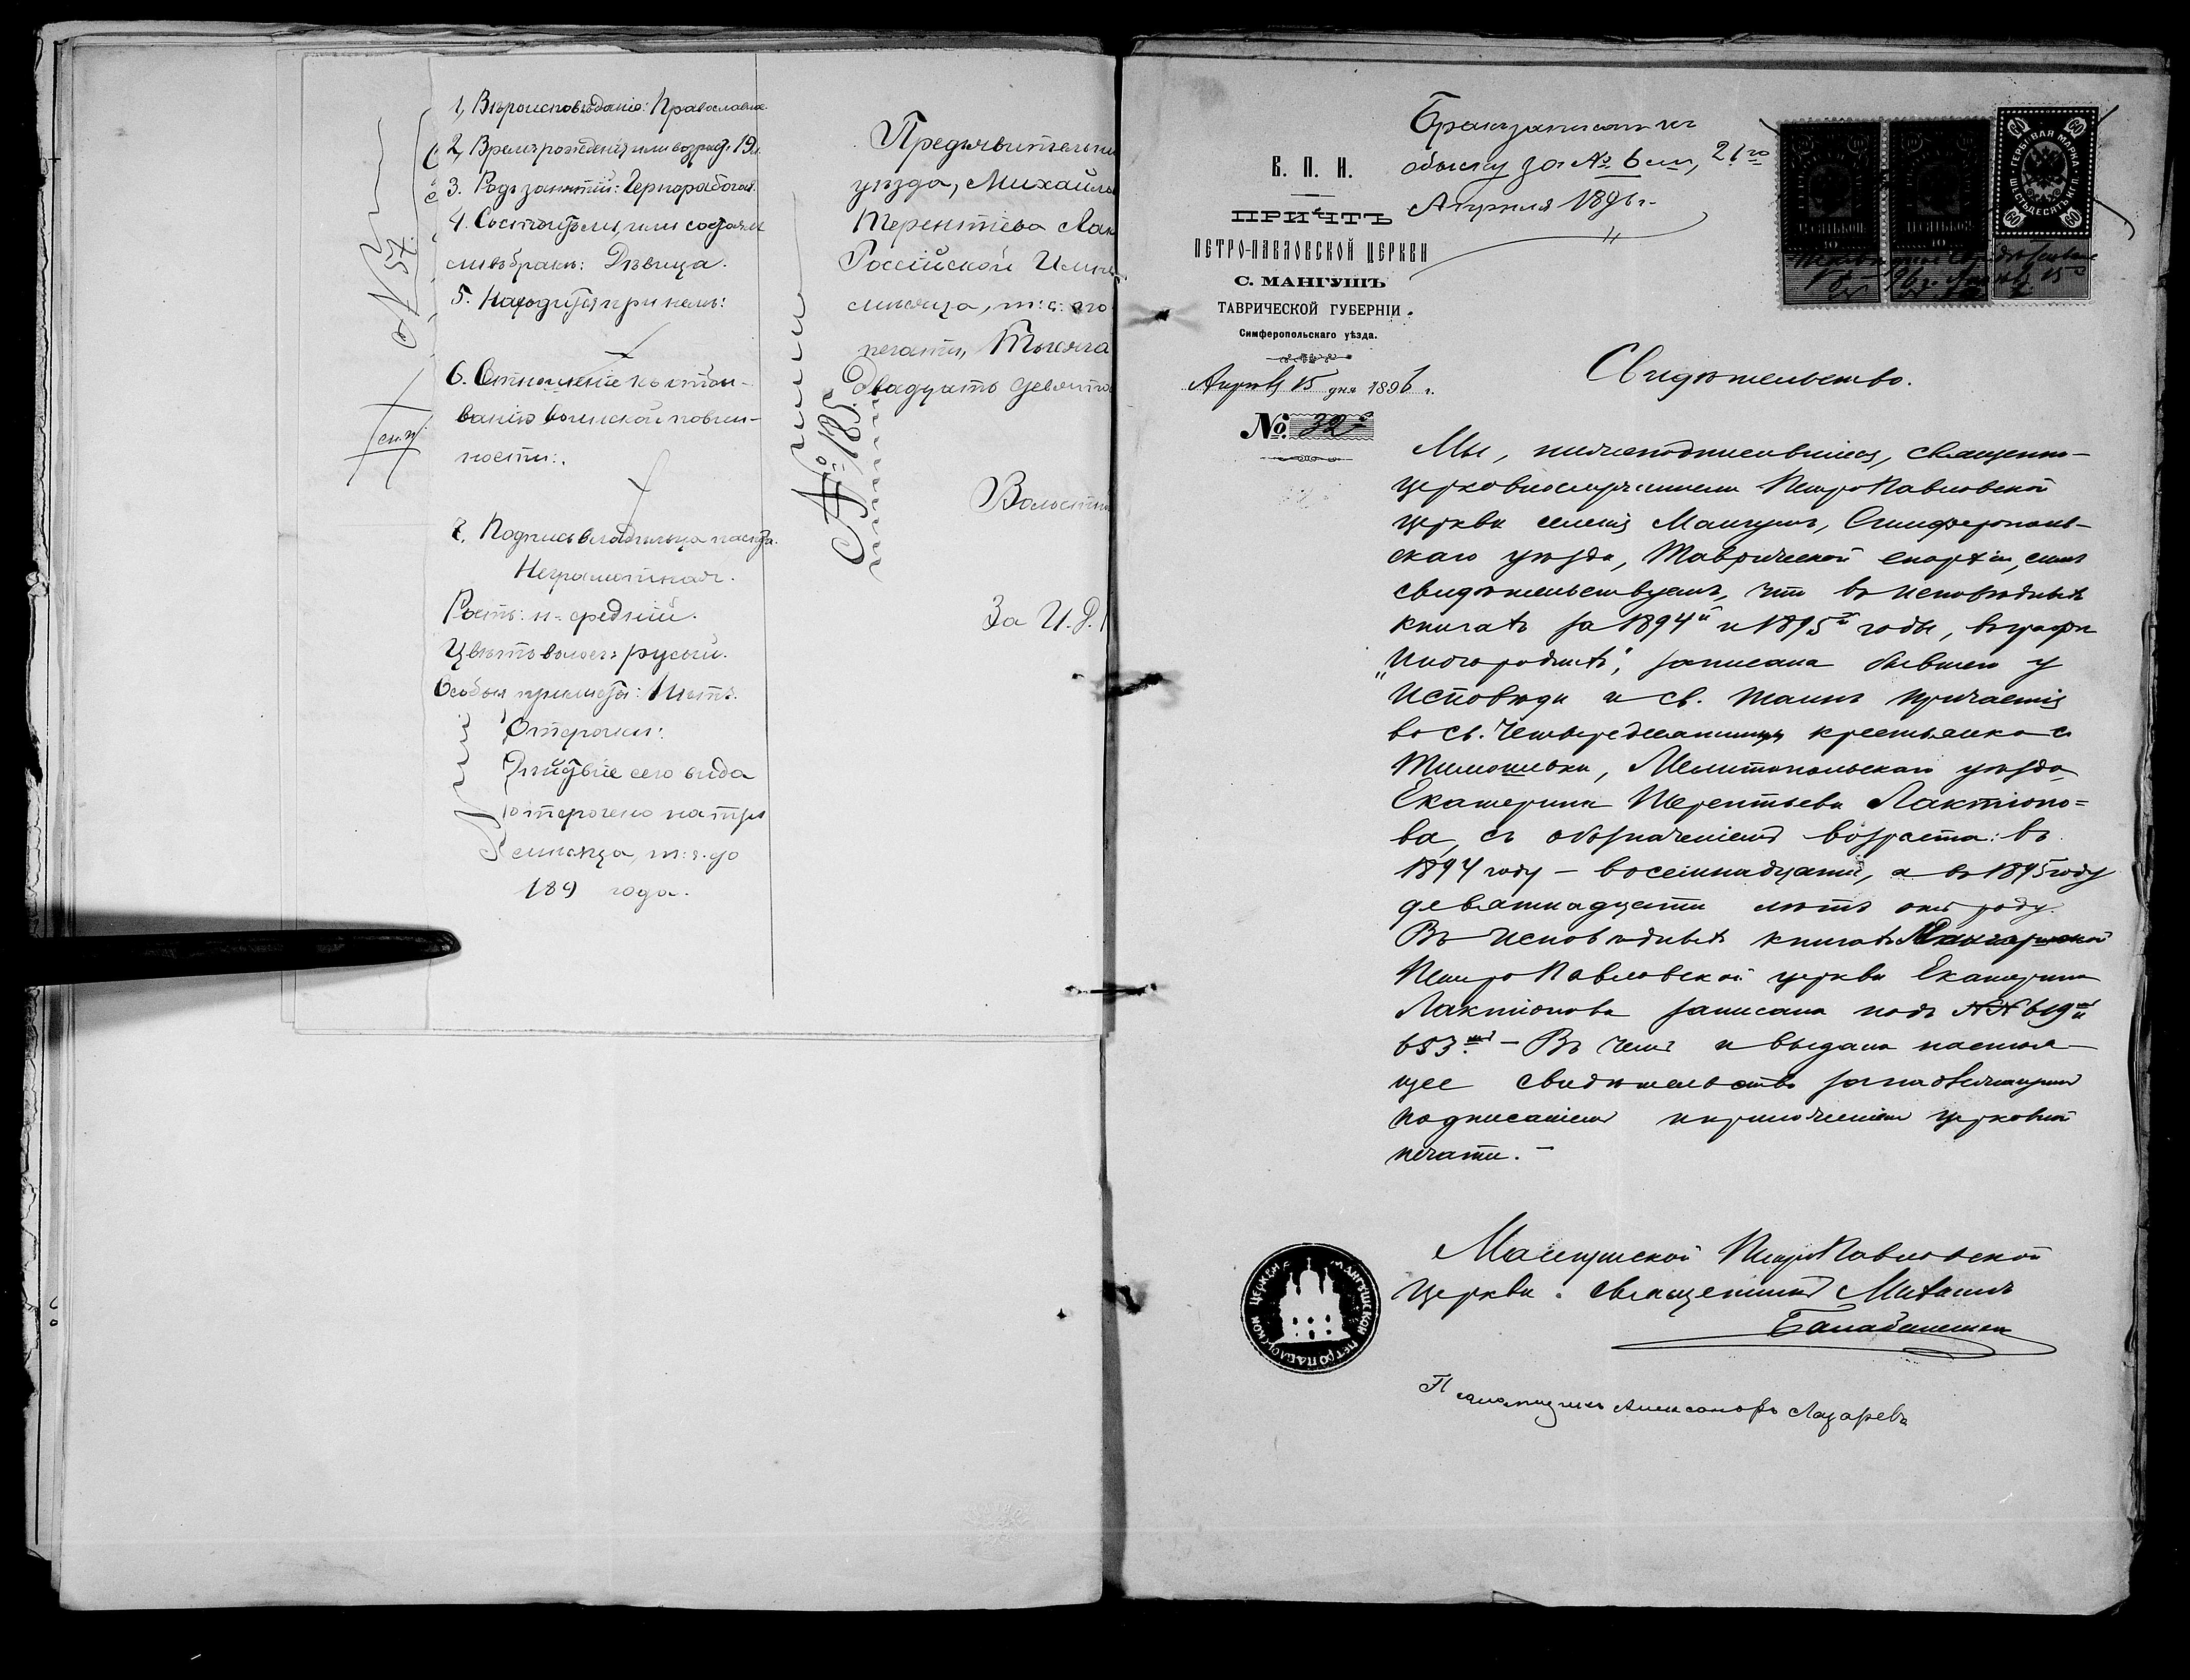 1, Вѣроисповѣданіе: Православна
2, Время рожденія или возраст. 19 л.
3. Родъ занятій: Чернорабочая.
4. Состоитъ ли, или состоялъ
ли въ бракѣ: Дѣвица.
5. Находится при немъ:
6. Отношеніе къ отбы-
ванію воинской повин-
ности:
7. Подпись владѣльца паспорта.
Неграмотная.
Ростъ: н. средній.
Цвѣтъ волосъ: русый.
Особыя примѣты: Нѣтъ.
Отсрочки:
Дѣйствіе сего вида
отсрочено на три
мѣсяца, т: е. до
189 года.
№ 185.
Предъявительни
уѣзда, Михайло
Терентіева Лак
Россійской Импе
мѣсяца, т: е: по
печати, Тысяча
двадцать девято
Волостно
За И. Д.
Б. П. И.
ПРИЧТЪ
ПЕТРО-ПАВЛОВСКОЙ ЦЕРКВИ
С. МАНГУШЪ
ТАВРИЧЕСКОЙ ГУБЕРНІИ.
Симферопольскаго уѣзда.
Апрѣля 15 дня 1896 г.
№ 32
Бракъ записанъ въ
обыску за № 6 мъ, 21 го
Апрѣля 1896 г.
ГЕРБОВАЯ МАРКА
ШЕСТЬДЕСЯТЪ
60
10 10
Свидѣтельство.
Мы, нижеподписавшіеся, священно-
церковнослужители Петро Павловской
церкви селенія Мангушъ, Симферополь-
скаго уѣзда, Таврической епархіи, симъ
свидѣтельствуемъ, что въ исповѣдныхъ
книгахъ за 1894й и 1895й годы, въ графѣ
„Иногородныхъ", записана бывшею у
Исповѣди и св. Таинъ Причастія
во св. Четыредесятницу крестьянка с.
Тимошевки, Мелитопольскаго уѣзда
Екатерина Терентьева Лактіоно=
ва, съ обозначеніемъ возраста: въ
1894 году – восемнадцати, а въ 1895 году
девятнадцати лѣтъ отъ роду.
Въ исповѣдныхъ книгахъ Мангушской
Петро Павловской церкви Екатерина
Лактіонова записана подъ №№ 619мъ и
653.мъ – Въ чемъ и выдано настоя-
щее свидѣтельство за надлежащимъ
подписаніемъ и приложеніемъ церковной
печати. –
Мангушской Петро Павловской
церкви священникъ Михаилъ
Псаломщикъ Александръ Лазаревъ
МАНГУШСКОЙ ПЕТРОПАВЛОВСКОЙ ЦЕРКВИ